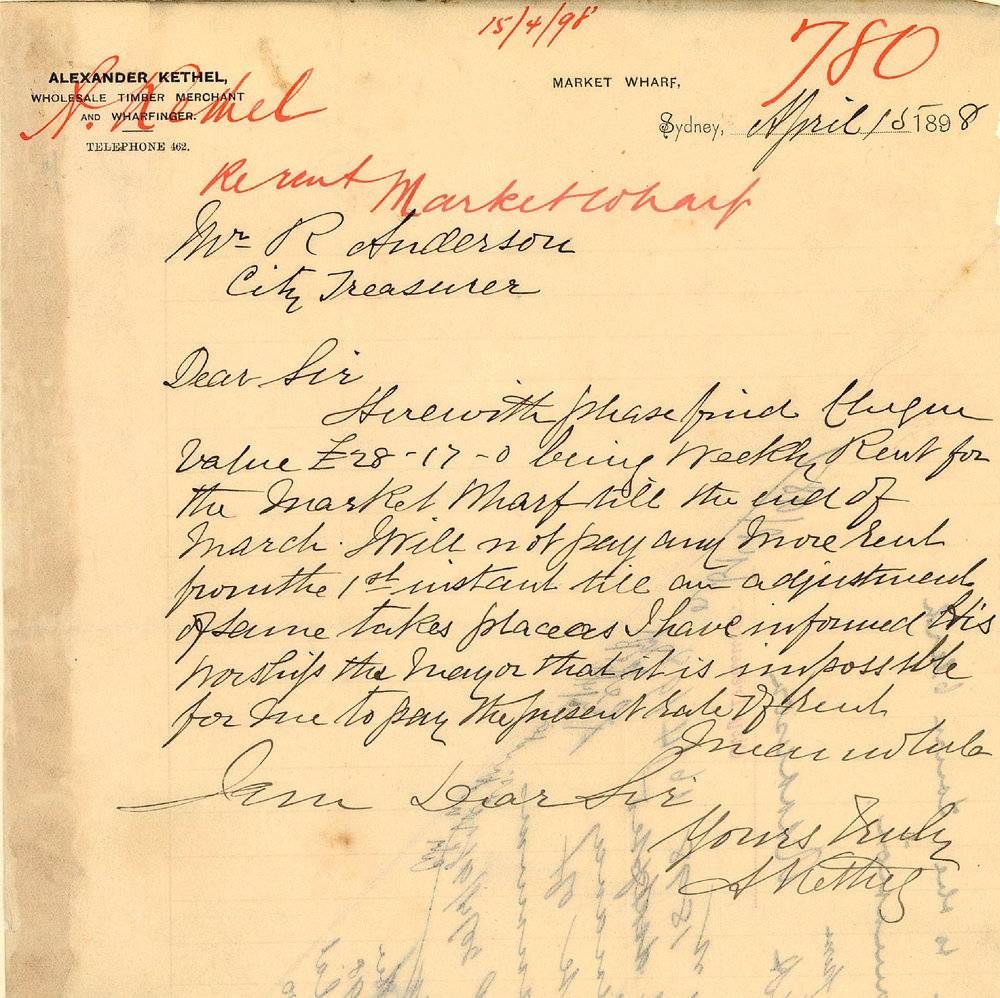 15/4/98
780
ALEXANDER KETHEL,
WHOLESALE TIMBER MERCHANT
AND WHARFINGER.
TELEPHONE 462.
A. Kethel
MARKET WHARF,
Sydney, April 15 1898
Re rent Market Wharf
Mr R Anderson
City Treasurer
Dear Sir
Herewith please find Cheque
Value £28-17-0 being Weekly Rent for
the Market Wharf till the end of
March. I Will not pay any More rent
from the 1st instant till an adjustment
of same takes place as I have informed His
Worship the Mayor that it is impossible
for me to pay the present rate of rent
I mean while
I am Dear Sir
Yours truly
A Kethel